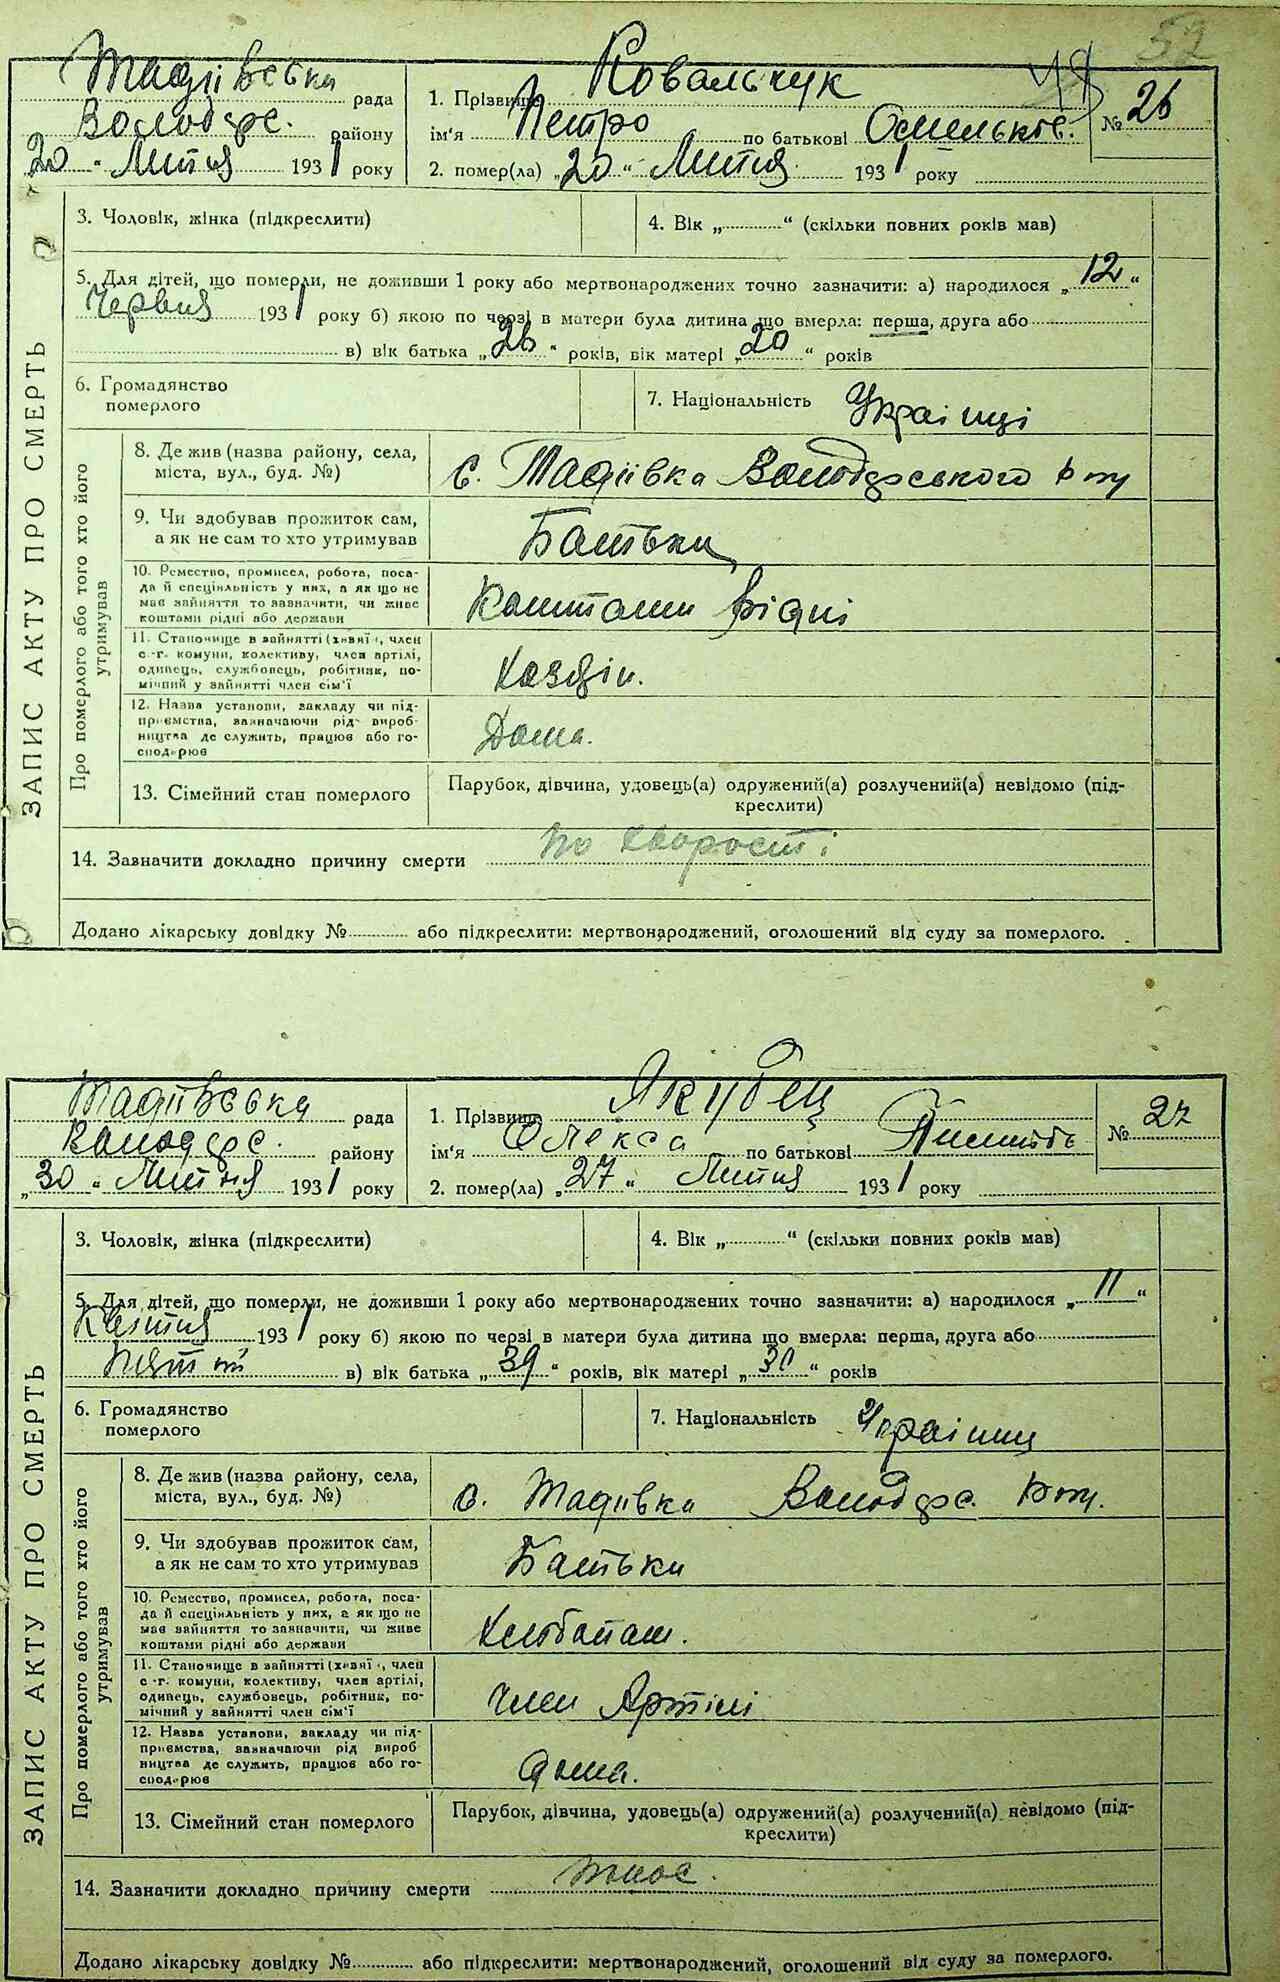 52
Тадіівська рада
Володарс. району
20 " Липня 1931 року
1. Прізвище Ковальчук
ім'я Петро по батькові Омельков.
№ 26
2. помер(ла) „20" Липня 1931 року
3. Чоловік, жінка (підкреслити)
4. Вік „ " (скільки повних років мав)
5. Для дітей, що померли, не доживши 1 року або мертвонароджених точно зазначити: а) народилося „12"
Червня 1931 року б) якою по черзі в матери була дитина що вмерла: перша, друга або
в) вік батька „26" років, вік матері „20" років
6. Громадянство
померлого
7. Національність Украінці
ЗАПИС АКТУ ПРО СМЕРТЬ
Про померлого або того хто його
утримував
8. Де жив (назва району, села,
міста, вул., буд. №)
с. Тадіівка Володарського р-ну
9. Чи здобував прожиток сам,
а як не сам то хто утримував
Батьки
10. Ремество, промисел, робота, поса-
да й спеціяльність у них, а як що не
має зайняття то зазначити, чи живе
коштами рідні або держави
Коштами рідні
11. Становище в зайнятті (хазяї, член
с.-г. комуни, колективу, член артілі,
одинець, службовець, робітник, по-
мічний у зайнятті член сім'ї
Хазяін.
12. Назва установи, закладу чи під-
приємства, зазначаючи рід вироб-
ництва де служить, працює або го-
сподарює
Дома.
13. Сімейний стан померлого
Парубок, дівчина, удовець(а) одружений(а) розлучений(а) невідомо (під-
креслити)
14. Зазначити докладно причину смерти по хворості
Додано лікарську довідку № або підкреслити: мертвонароджений, оголошений від суду за померлого.
Тадіівська рада
Володарс. району
„30" Липня 1931 року
1. Прізвище Якубец
ім'я Олекса по батькові
№ 27
2. помер(ла) „27" Липня 1931 року
3. Чоловік, жінка (підкреслити)
4. Вік „ " (скільки повних років мав)
5. Для дітей, що померли, не доживши 1 року або мертвонароджених точно зазначити: а) народилося „11"
Квітня 1931 року б) якою по черзі в матери була дитина що вмерла: перша, друга або
пятий в) вік батька „39" років, вік матері „30" років
6. Громадянство
померлого
7. Національність Украінці
ЗАПИС АКТУ ПРО СМЕРТЬ
Про померлого або того хто його
утримував
8. Де жив (назва району, села,
міста, вул., буд. №)
с. Тадіівка Володарс. р-ну.
9. Чи здобував прожиток сам,
а як не сам то хто утримував
Батьки
10. Ремество, промисел, робота, поса-
да й спеціяльність у них, а як що не
має зайняття то зазначити, чи живе
коштами рідні або держави
Хлобопаш.
11. Становище в зайнятті (хазяї, член
с.-г. комуни, колективу, член артілі,
одинець, службовець, робітник, по-
мічний у зайнятті член сім'ї
член Артілі
12. Назва установи, закладу чи під-
приємства, зазначаючи рід вироб-
ництва де служить, працює або го-
сподарює
дома.
13. Сімейний стан померлого
Парубок, дівчина, удовець(а) одружений(а) розлучений(а) невідомо (під-
креслити)
14. Зазначити докладно причину смерти понос.
Додано лікарську довідку № або підкреслити: мертвонароджений, оголошений від суду за померлого.